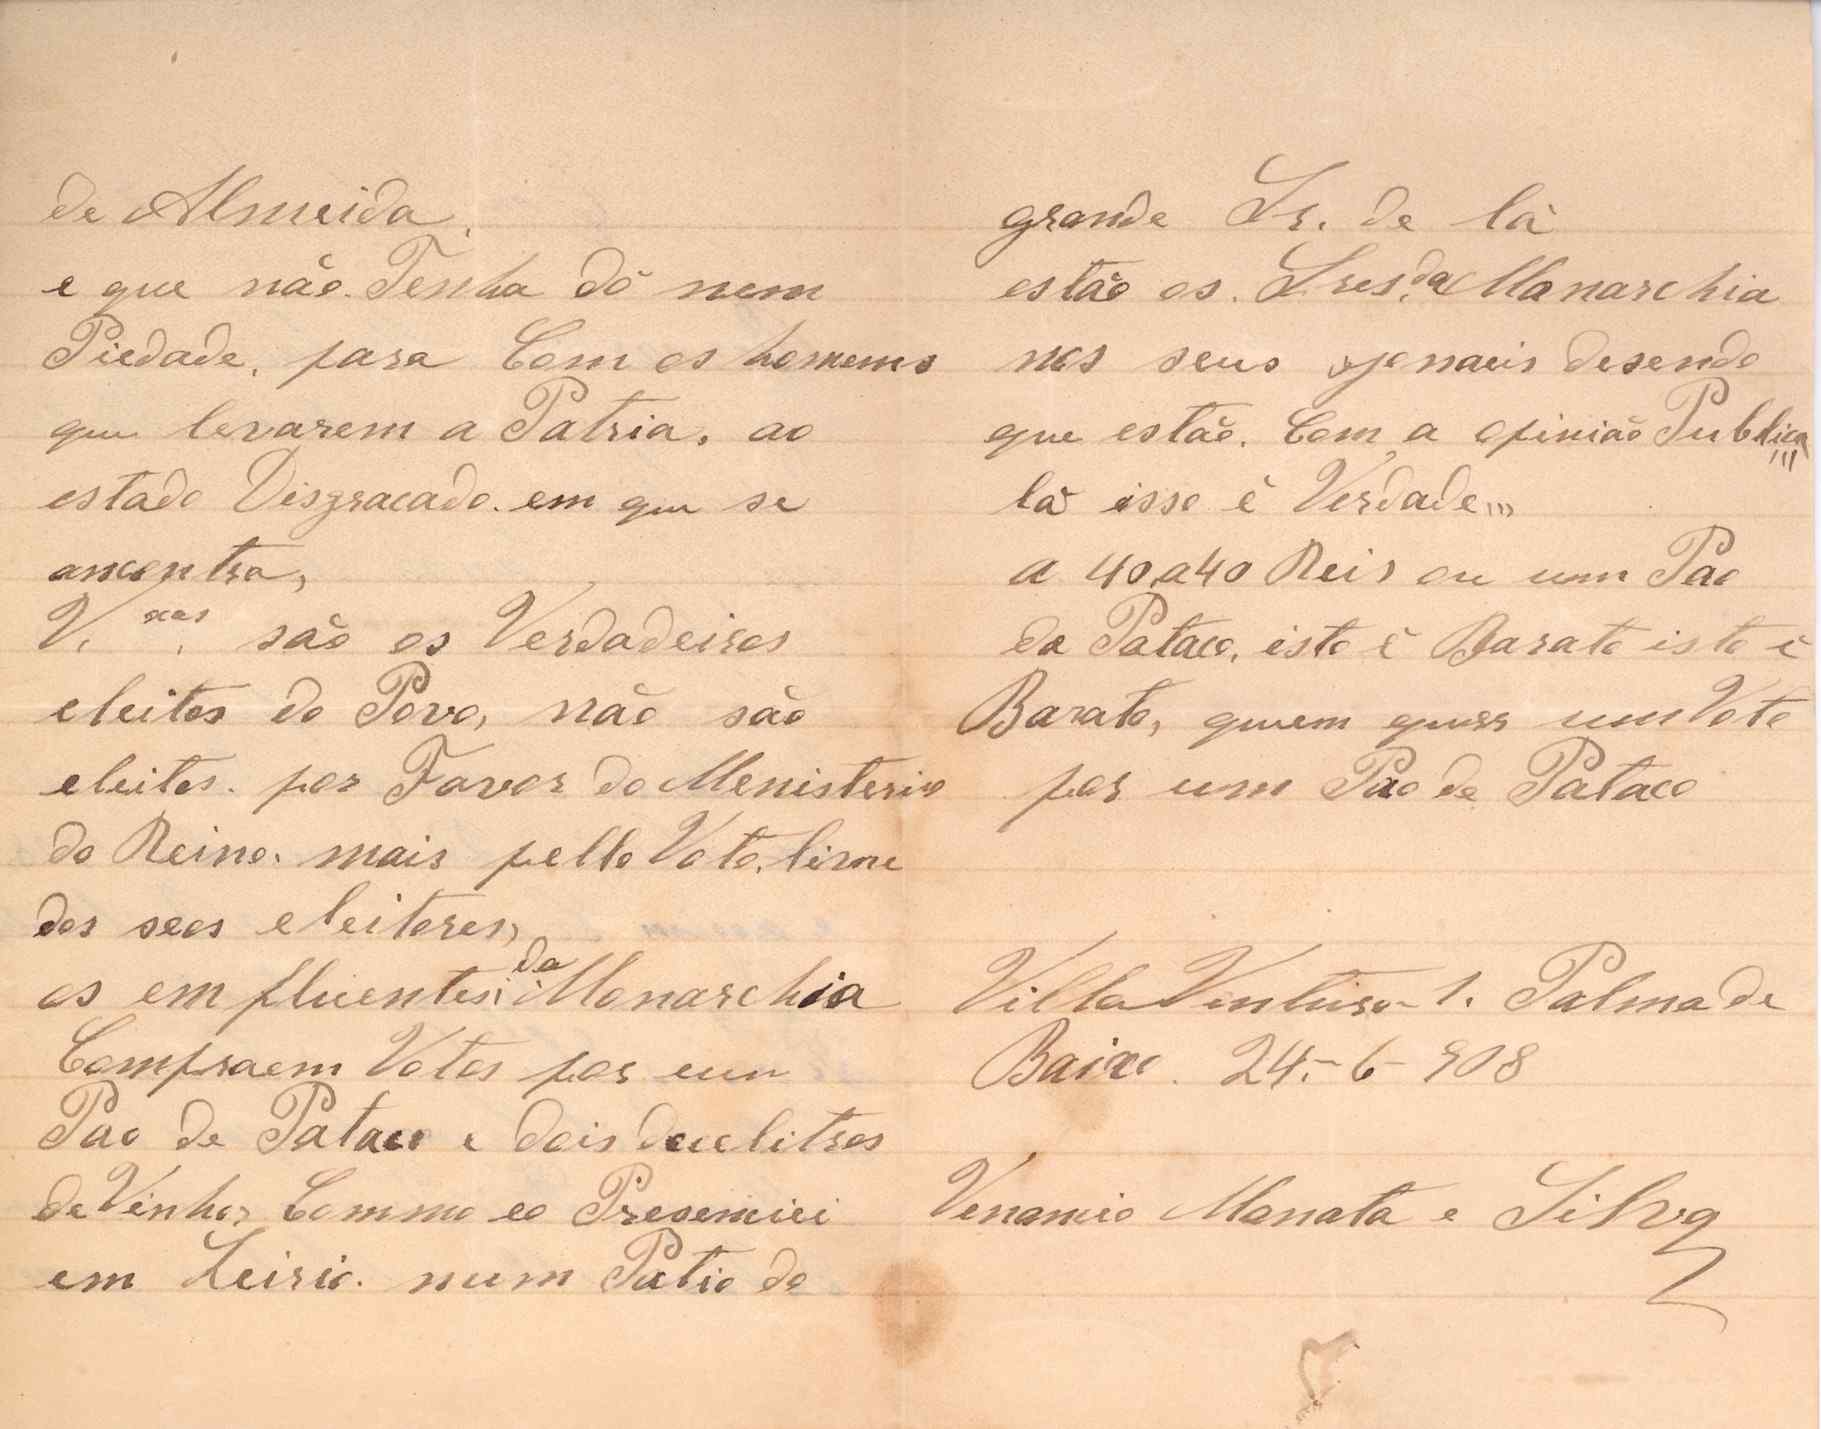 de Almeida,
e que não. Tenha dó nem
Piedade, para Com os homems
que levarem a Patria, ao
estado Disgracado. em que se
encontra,
V. Exas. são os Verdadeiros
eleitos do Povo, não são
eleitos. por Favor do Menisterio
do Reino. mais pello Voto. livre
dos seos eleitores,
os emfluentes, da Monarchia
Compraem Votos por um
Pao de Pataco e dois decelitros
de Vinho, Commo eo Presemciei
em Leiria. num Patio do
grande Sr. de lá
estão os. Sres. da Monarchia
nos seus jonaeis desendo
que estão. Com a opinião Publica,,,
lá isso é Verdade,,,
a 40, a 40 Reis ou um Pao
de Pataco, isto é Barato isto é
Barato, quem quer um Voto
por um Pao de Pataco
Villa Ventura 1. Palma de
Baixo. 24-6-908
Venancio Manata e Silva